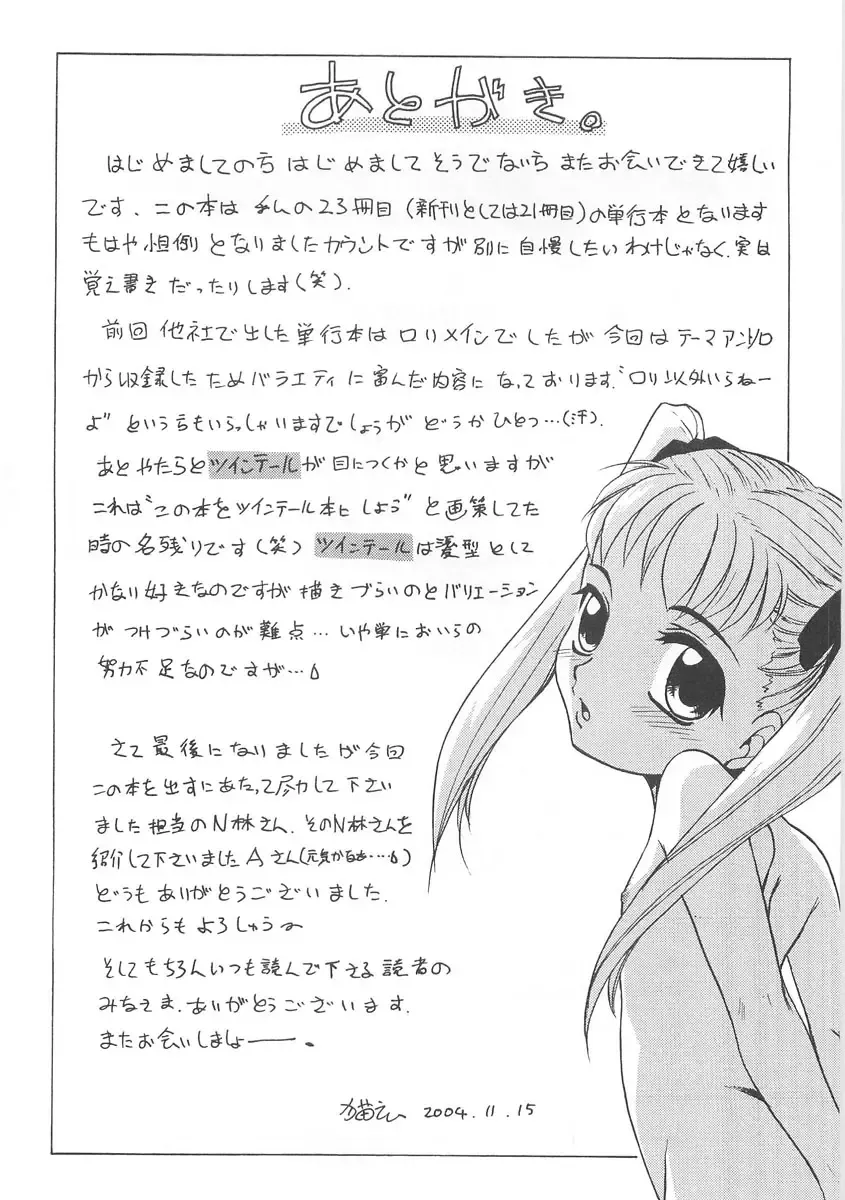 あとがき。
はじめましてのち はじめまして そうでないち またお会いできて嬉しい
です。この本は 私の23冊目(新刊としては21冊目)の単行本 となります
もはや 恒例 となりましたカウントですが 別に 自慢したい わけじゃなく、実は
覚え書き だったりします(笑).
前回 他社で出した単行本は ロリメインでしたが 今回は テーマアンソロ
から収録した ためバラエティ に富んだ内容に なっております。"ロリ以外いらねー
よ" という方もいらっしゃいますでしょうが どうか ひとつ…(汗).
あと やたらと ツインテールが 目につくかと 思いますが
これは"この本をツインテール本に しよう" と画策してた
時の 名残りです(笑) ツインテールは髪型として
かなり 好きなのですが 描きづらいのと バリエーション
が つけづらいのが 難点… いや単に おいらの
努力不足なのですが…
さて 最後になりましたが 今回
この本を出すにあたって尽力して 下さい
ました 担当のN林さん、そのN林さんを
紹介して下さいました Aさん(元気かなぁ…)
どうも ありがとうございました.
これからも よろしゅう〜
そして もちろん いつも 読んで下さる 読者の
みなさま、ありがとうございます.
またお会いしましょ――.
2004.11.15